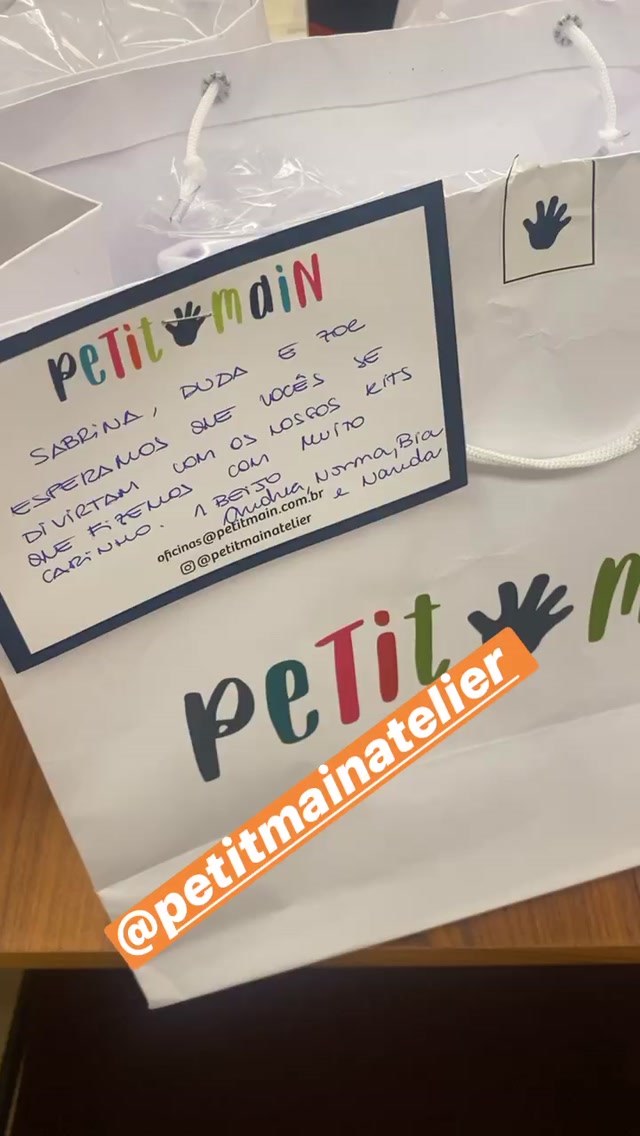 PETIT MAIN
SABRINA, DUDA E ZOE
ESPERAMOS QUE VOCÊS SE
DIVIRTAM COM OS NOSSOS KITS
QUE FIZEMOS COM MUITO
CARINHO. 1 BEIJO
Andrea, Norma, Bia
e Nanda
oficinas@petitmain.com.br
@petitmainatelier
PETIT M
@petitmainatelier